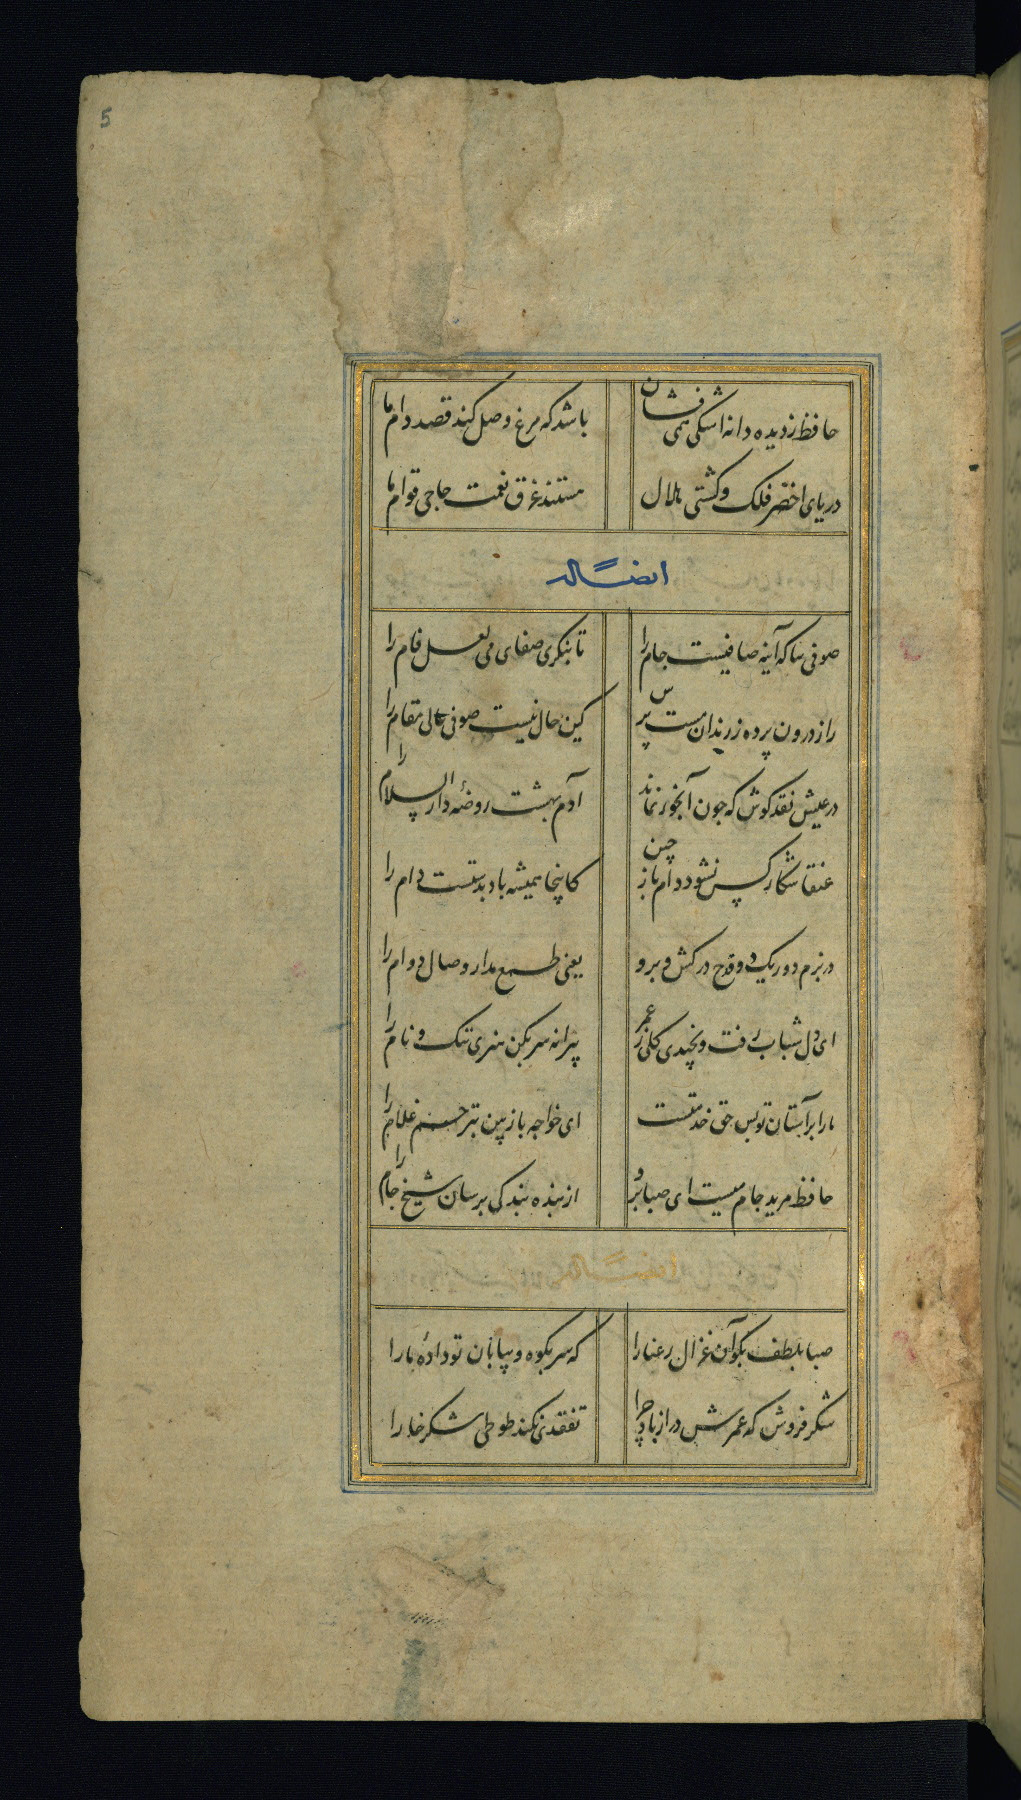 5
حافظ ز دیده دانه اشکی همی فشان باشد که مرغ وصل کند قصد دام ما
دریای اخضر فلک و کشتی هلال هستند غرق نعمت حاجی قوام ما
ایضاً له
صوفی بیا که آینه صافیست جام را تا بنگری صفای می لعل فام را
راز درون پرده ز رندان مست پرس کین حال نیست صوفی عالی مقام را
در عیش نقد کوش که چون آبخور نماند آدم بهشت روضهٔ دار السلام را
عنقا شکار کس نشود دام باز چین کاینجا همیشه باد بدستست دام را
در بزم دور یک دو قدح درکش و برو یعنی طمع مدار وصال دوام را
ای دل شباب رفت و نچیدی کلی ز عمر پیرانه سر بکن هنری ننک و نام را
ما را بر آستان تو بس حق خدمتست ای خواجه باز بین بترحم غلام را
حافظ مرید جام میست ای صبا برو از بنده بندکی برسان شیخ جام را
ایضاً له
صبا بلطف بکو آن غزال رعنا را که سر بکوه و بیابان تو دادهٔ ما را
شکر فروش که عمرش دراز باد چرا تفقدی نکند طوطی شکرخا را